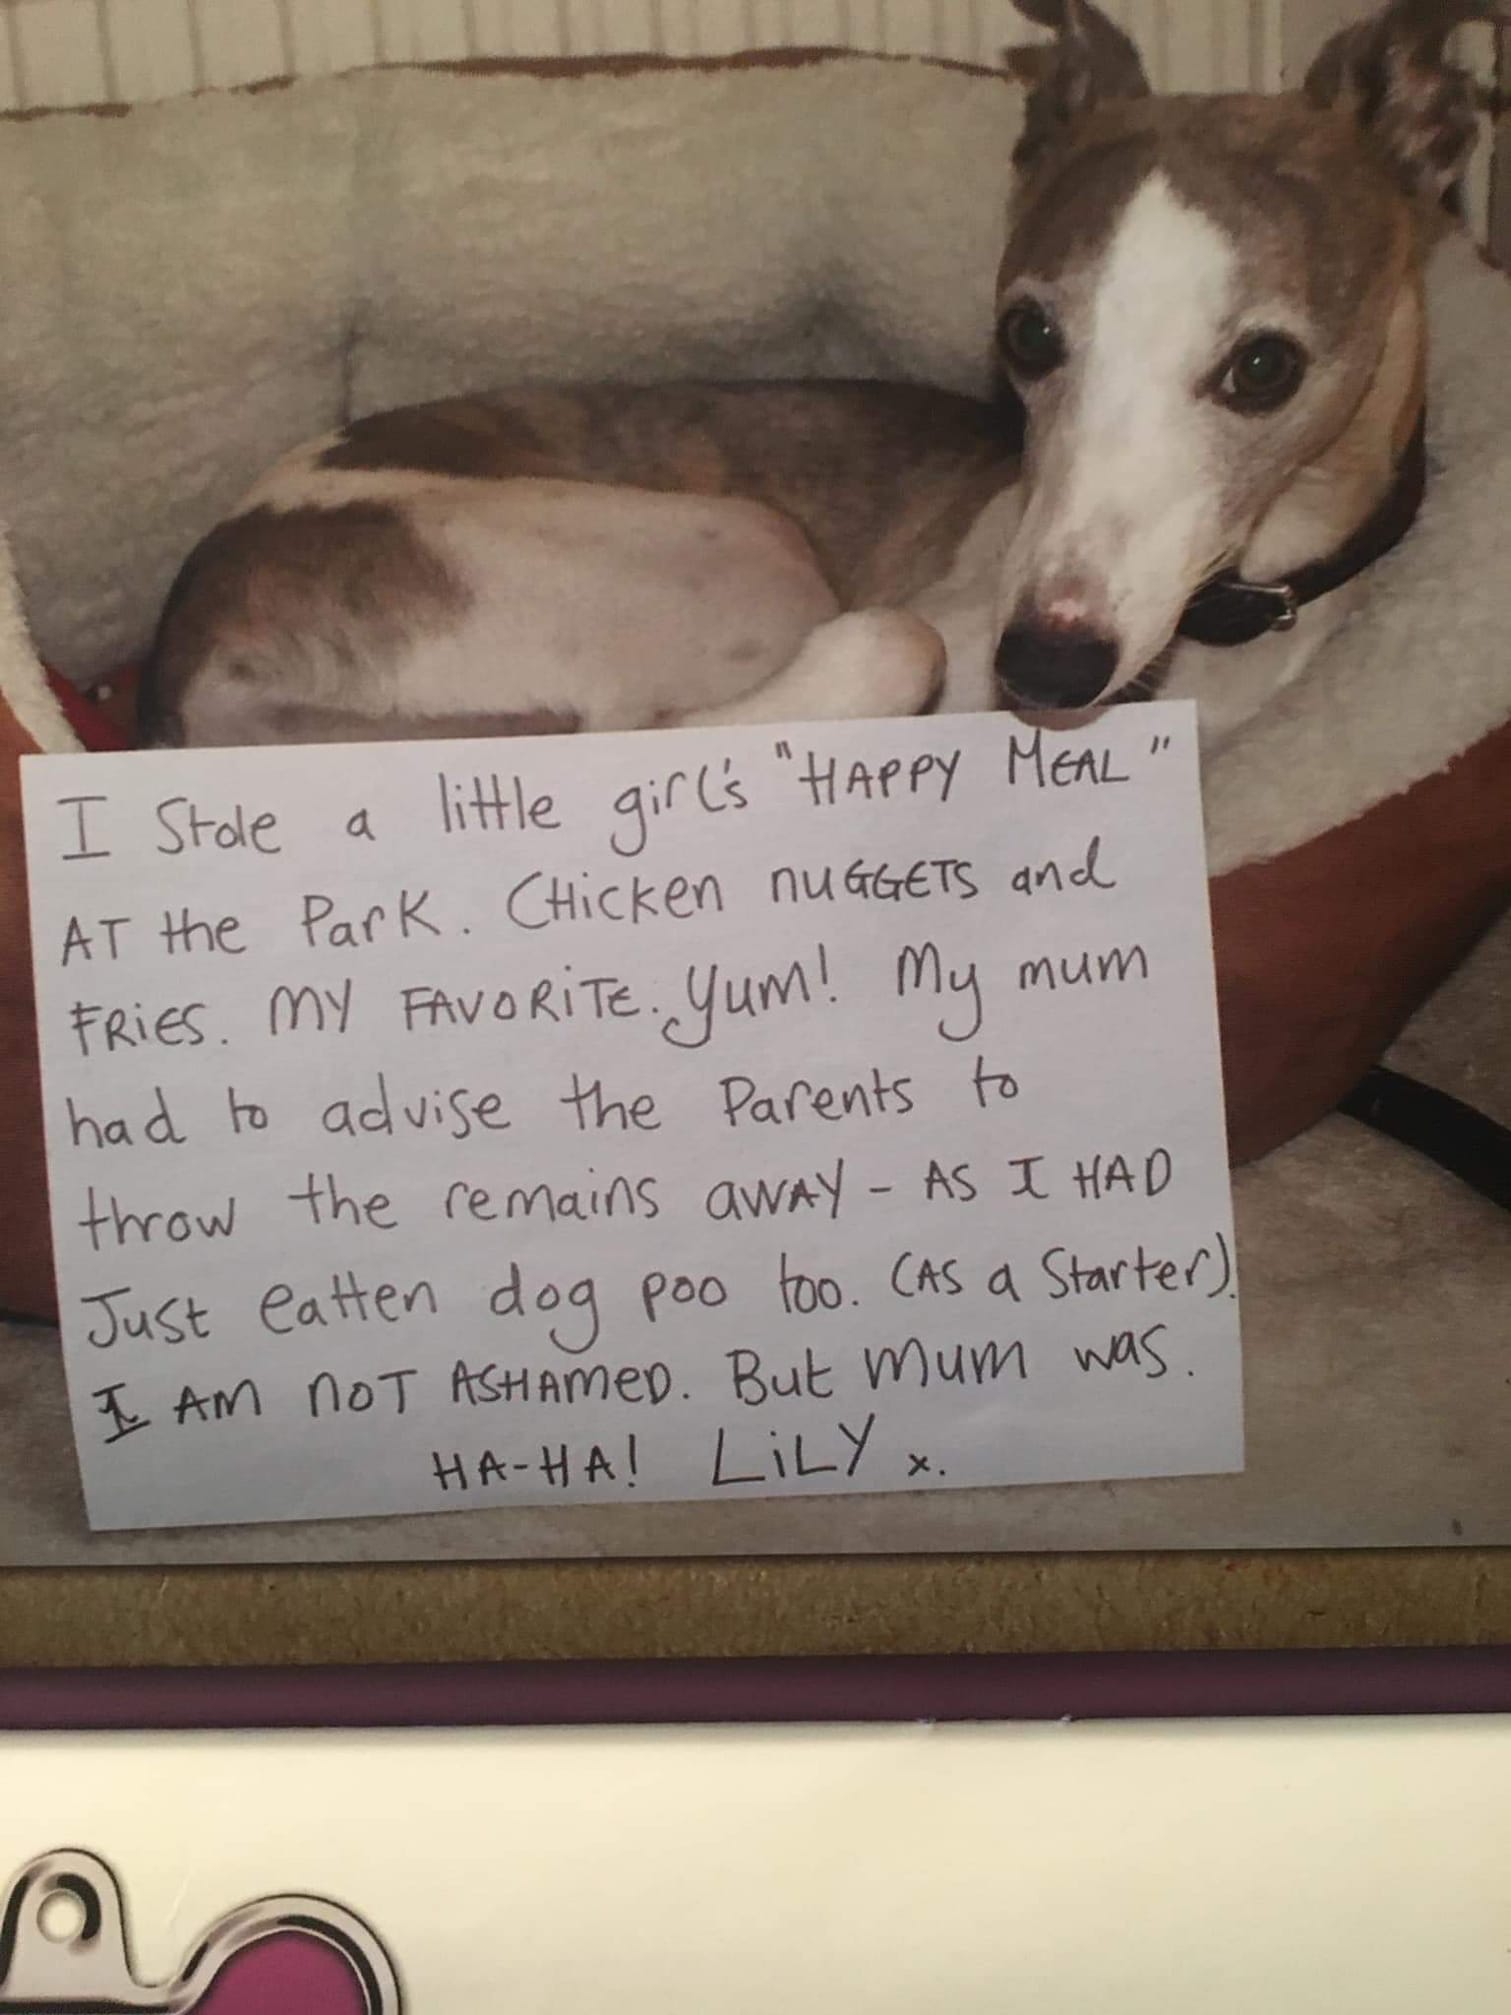 I Stole a little girl's "HAPPY MEAL"
AT the Park. CHicken nuGGETS and
FRiES. MY FAVORiTE. Yum! My mum
had to advise the Parents to
throw the remains aWAY - AS I HAD
Just eatten dog poo too. (AS a Starter).
I AM noT ASHAmeD. But mum was.
HA-HA! LiLY x.